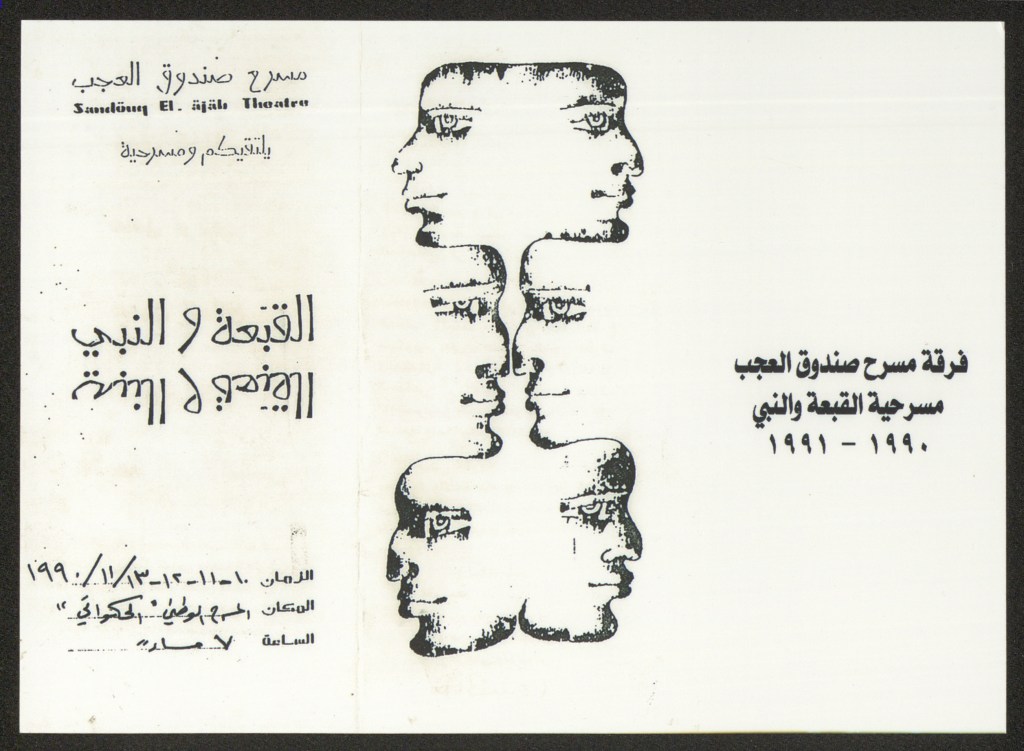 مسرح صندوق العجب
Sandöuq El. äjäb Theatre
يلتقيكم ومسرحية
القبعة و النبي
الزمان ١٠-١١-١٢-١٣/١١/١٩٩٠
المكان المسرح الوطني "الحكواتي"
الساعة ٧ مساء
فرقة مسرح صندوق العجب
مسرحية القبعة والنبي
١٩٩٠ - ١٩٩١